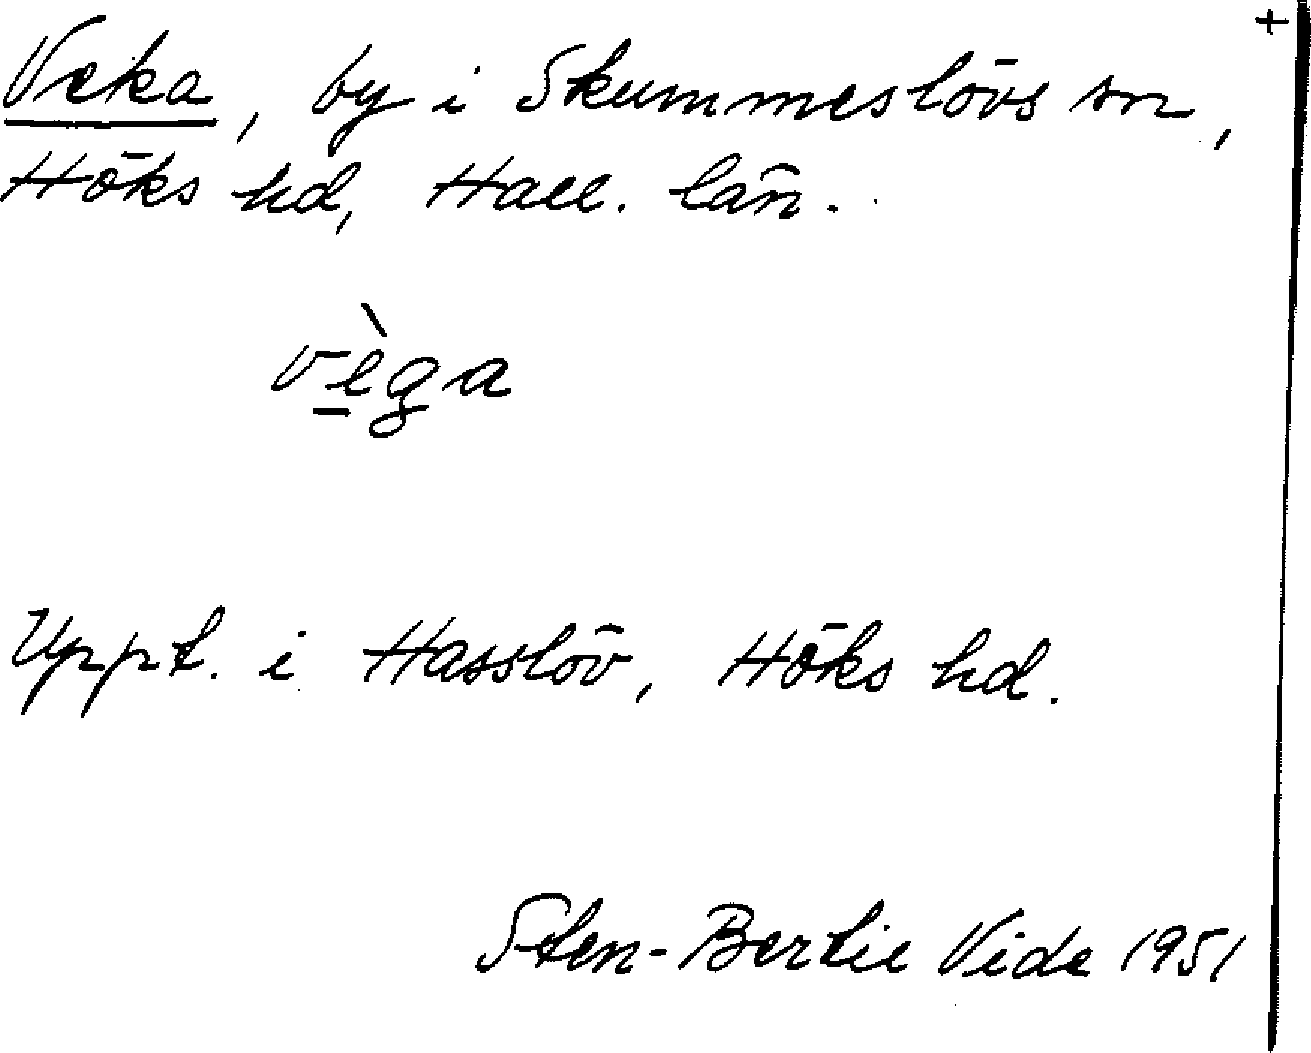 +
Veka, by i Skummeslövs sn,
Höks hd, Hall. län.
vèga
Uppt. i Hasslöv, Höks hd.
Sten-Bertil Vide 1951